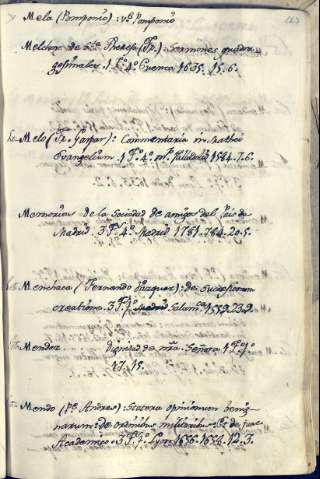 Mela (Pomponio): vº Pomponio
Melchor de Sta. Theresa (Fr.): Sermones quadra-
gesimales. 1 Tº 4º Cuenca 1635. 15. 6.
Melo (Fr. Gaspar): Commentaria in Mathei
Evangelium. 1 Tº 4º Valladolid 1584. 7. 6.
Memorias de la Sociedad de amigos del Pais de
Madrid. 3 Tº 4º Madrid 1781. 784. 20. 5.
Menchaca (Fernando Vazquez): de Successionum
creatione. 3 Tº fº Salamca. 1559. 23. 2.
Mendez Dignidad de nra. Señora 1 Tº fº
17. 15.
Mendo (Pe. Andres): Statera opinionum benig-
narum: de ordinibus militaribus: de jure
Academico. 3 Tº fº Lyon 1666. 1668. 12. 3.